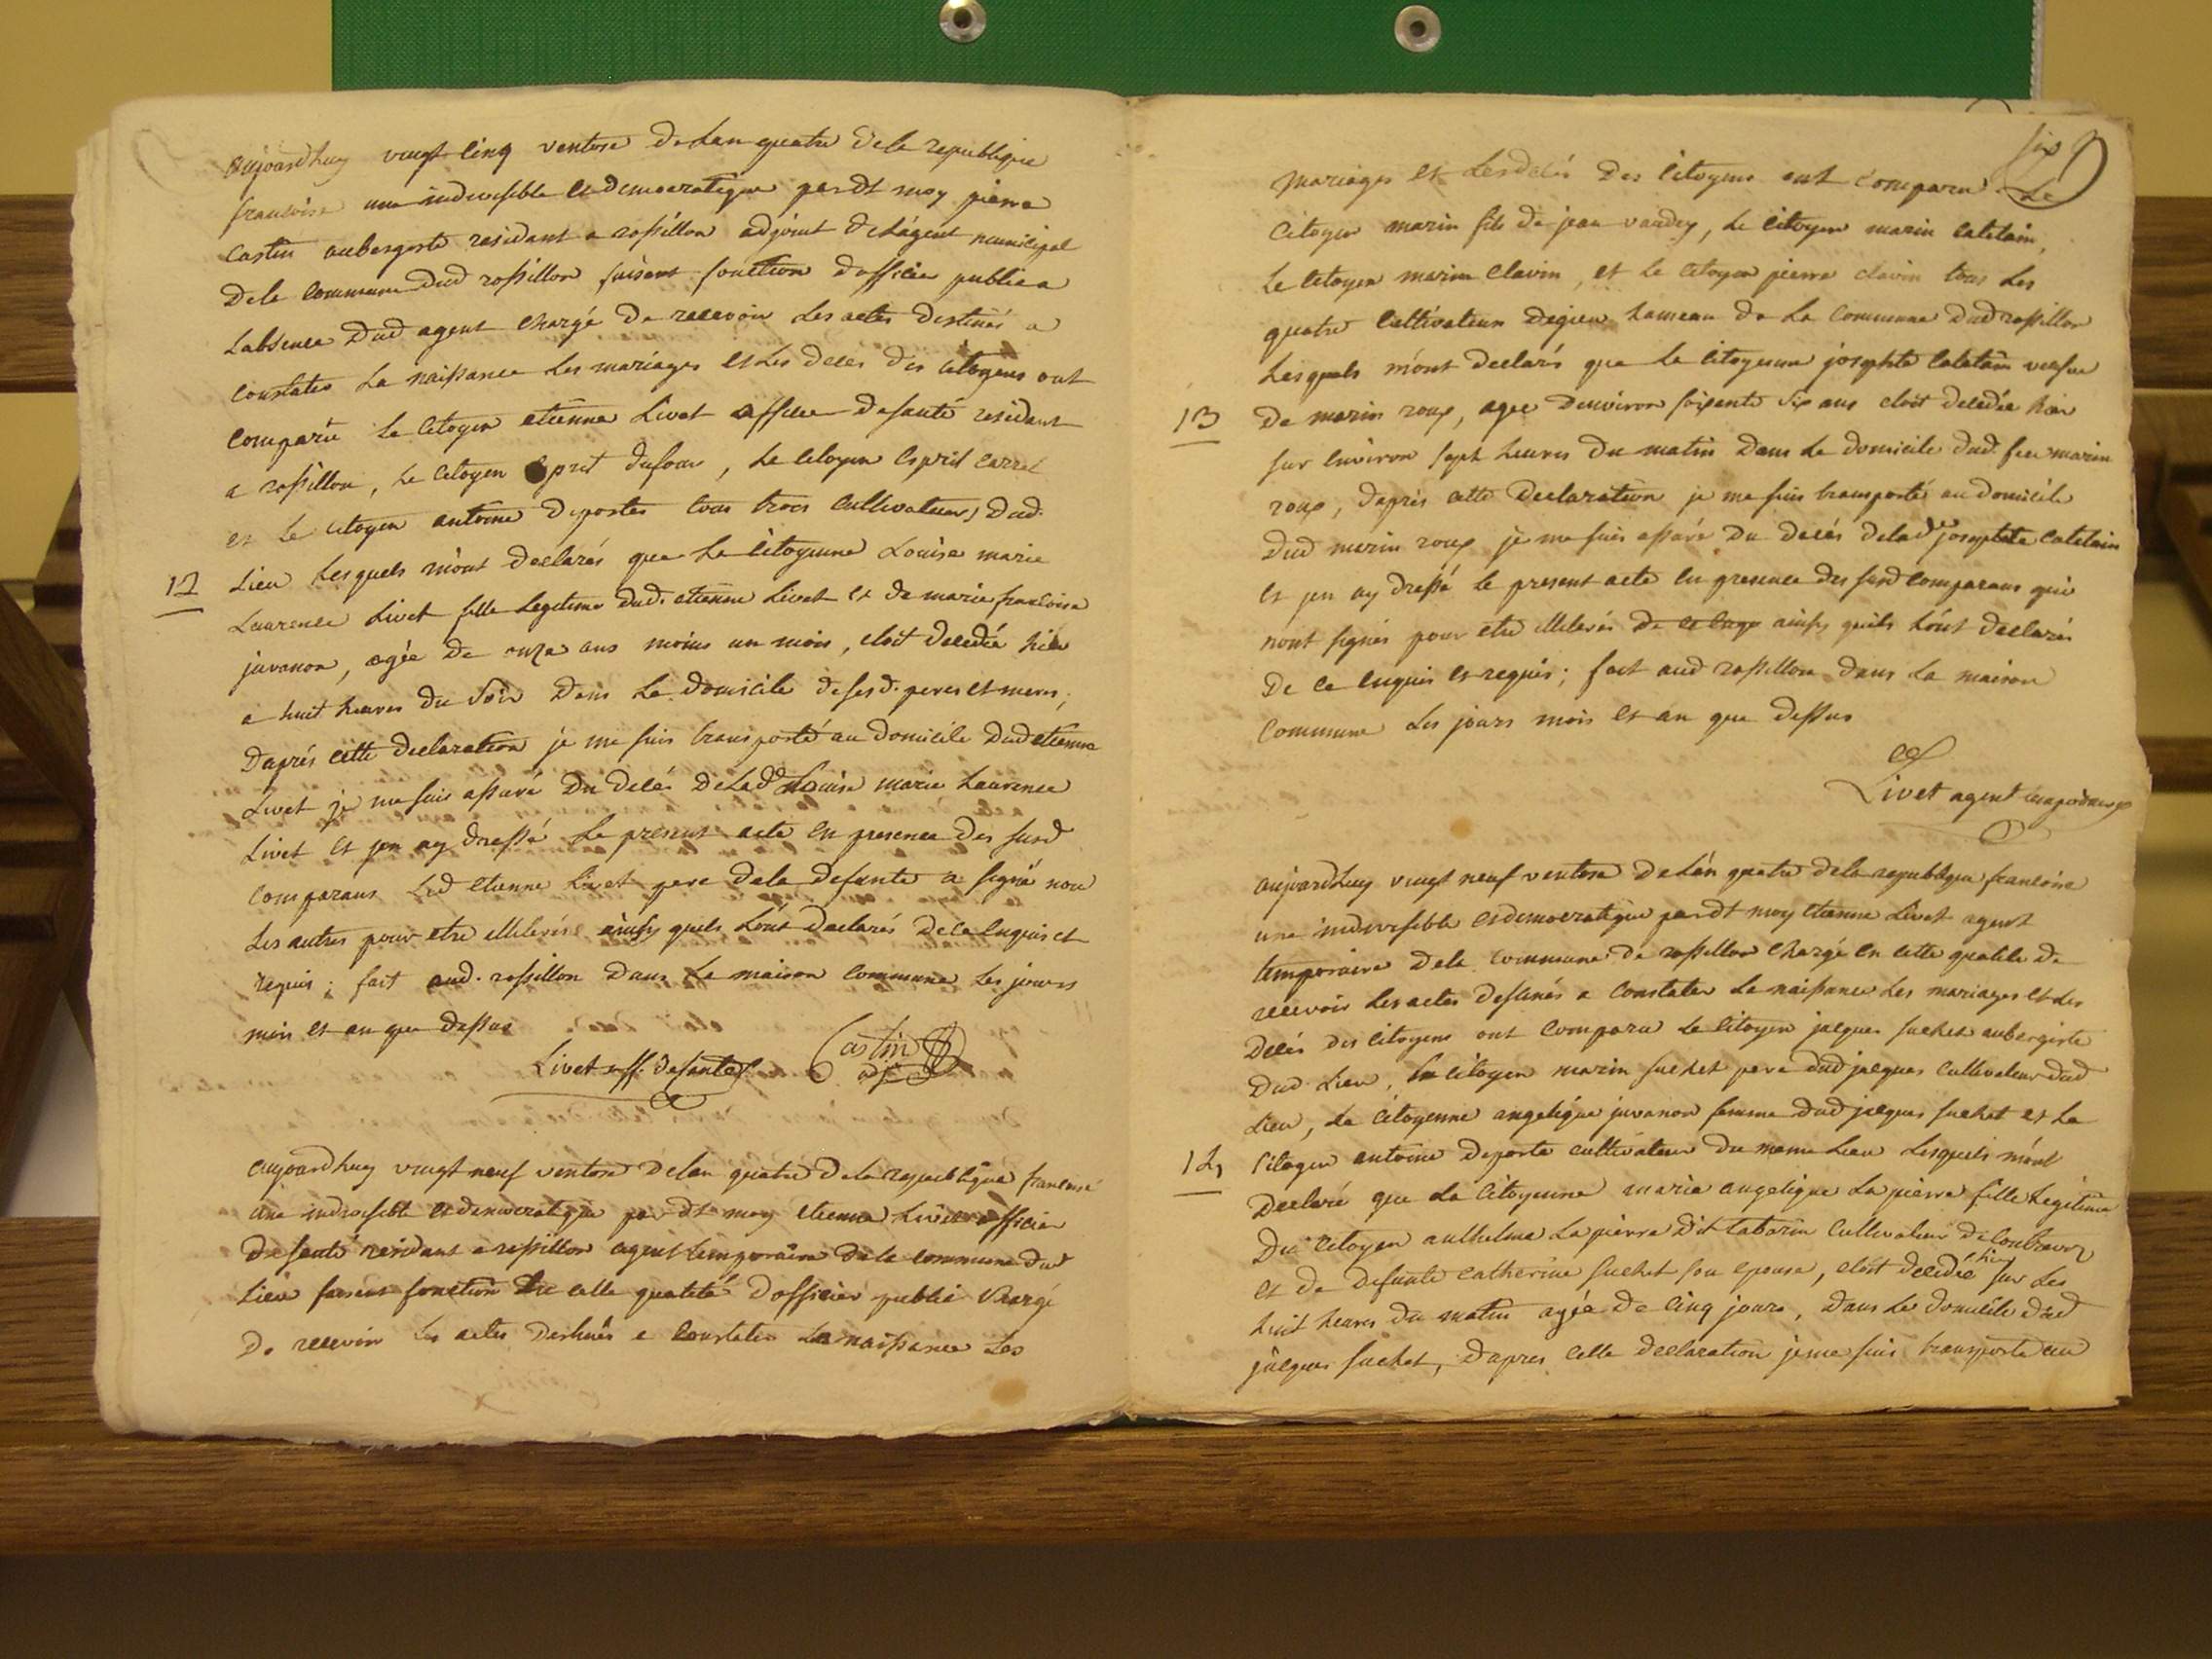 aujourdhuy vingt cinq ventose de lan quatre dela republique
francoise une indivisible et democratique pardt moy pierre
Castin aubergiste residant a rossillon adjoint de lágent municipal
dela commune dud rossillon faisant fonction dofficier public a
labsence dud agent chargé de recevoir les actes destinés a
constater la naissance les mariages et les deces des citoyens ont
comparu le citoyen etienne Livet officier de santé residant
a rossillon, le citoyen esprit dufour, le citoyen esprit carrel
et le citoyen antoine deportes tous trois cultivateurs dud.
12 lieu lesquels mónt declarés que la citoyenne Louise marie
Laurence Livet fille legitime dud. etienne Livet et de marie francoise
juvanon, agée de onze ans moins un mois, etoit decedée hier
a huit heures du soir dans le domicile desesd. peres et meres,
daprés cette declaration je me suis transporté au domicile dud etienne
Livet je me suis assuré du decés delad Louise marie Laurence
Livet et jen ay dressé le present acte en presence des susd
comparans led etienne Livet pere dela defunte a signé non
les autres pour etre illiterés ainsy quils lónt declarés dece enquis et
requis; fait aud. rossillon dans la maison commune les jours
mois et an que dessus
Livet off. desanté Castin
adj
aujourdhuy vingt neuf ventose delan quatre dela republique francoise
une indivisible et democratique par dt moy etienne Livet officier
desanté residant a rossillon agent temporaire dela commune dud
lieu faisant fonction en cette qualité dofficier public chargé
de recevoir les actes destinés a constater la naissance les
six
mariages et les decés des citoyens ont comparu le
citoyen marin fils de jean vaudey, le citoyen marin catelain,
le citoyen marin clavin, et le citoyen pierre clavin tous les
quatre cultivateurs degieu hameau de la commune dud rossillon
lesquels mónt declarés que la citoyenne josephte catelain veufve
13 de marin roux, agee denviron soixante six ans etoit decedée hier
sur environ sept heures du matin dans le domicile dud. feu marin
roux, daprés cette declaration je me suis transporté au domicile
dud marin roux je me suis assuré du decés delade josephte catelain
et jen ay dressé le present acte en presence des susd comparans qui
nont signés pour etre illiterés de ce enqu ainsy quils lónt declarés
de ce enquis et requis; fait aud rossillon dans la maison
commune les jours mois et an que dessus
Livet agent temporaire
aujourdhuy vingt neuf ventose de lán quatre dela republique francoise
une indivisible et democratique pardt moy etienne Livet agent
temporaire dela commune de rossillon chargé en cette qualité de
recevoir les actes destinés a constater la naissance les mariages et les
decés des citoyens ont comparu le citoyen jacques suchet aubergiste
dud lieu, le citoyen marin suchet pere dud jacques cultivateur dud
lieu, la citoyenne angelique juvanon femme dud jacques suchet et le
14 citoyen antoine deporte cultivateur du meme lieu lesquels mónt
declaré que la citoyenne marie angelique Lapierre fille legitime
du citoyen anthelme Lapierre dit tabarin cultivateur de contrevoz
et de defunte catherine suchet son epouse, etoit decedée hier sur les
huit heures du matin agée de cinq jours, dans le domicile dud
jacques suchet, dapres cette declaration je me suis transporté au